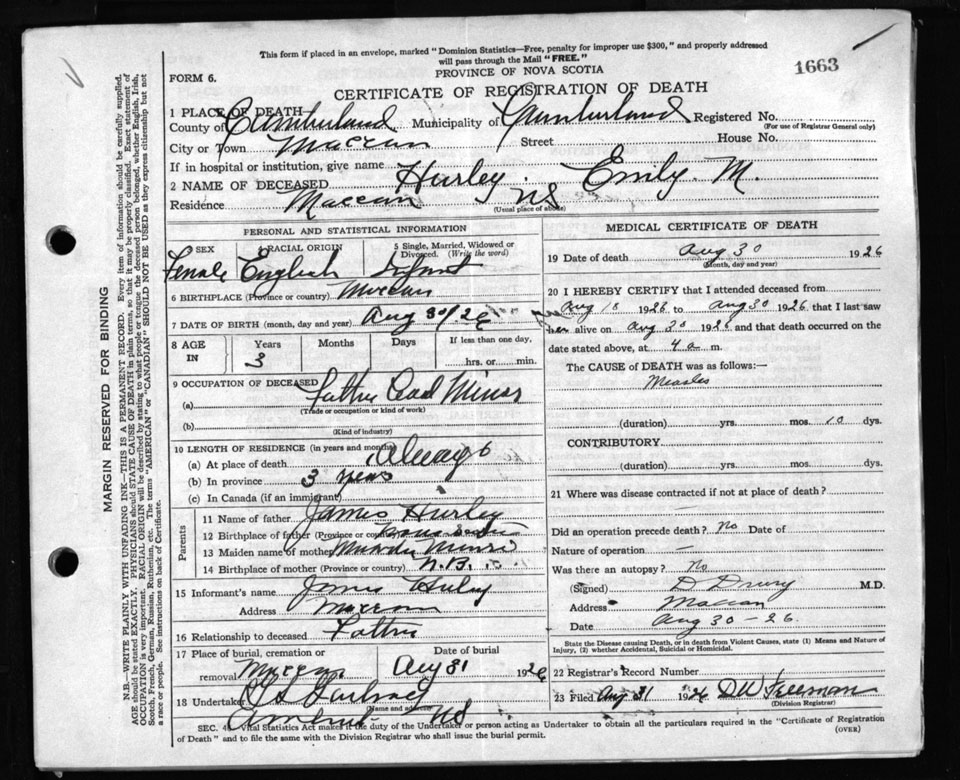 This form if placed in an envelope, marked "Dominion Statistics—Free, penalty for improper use $300," and properly addressed
will pass through the Mail "FREE."
PROVINCE OF NOVA SCOTIA
1663
FORM 6.
CERTIFICATE OF REGISTRATION OF DEATH
1 PLACE OF DEATH
County of Cumberland Municipality of Cumberland Registered No.
(For use of Registrar General only)
City or Town Maccan Street House No.
If in hospital or institution, give name
2 NAME OF DECEASED Hurley Emily M.
Residence Maccan NS
(Usual place of abode)
PERSONAL AND STATISTICAL INFORMATION
3 SEX 4 RACIAL ORIGIN 5 Single, Married, Widowed or Divorced. (Write the word)
Female English Infant
6 BIRTHPLACE (Province or country) Maccan
7 DATE OF BIRTH (month, day and year) Aug 30/26
8 AGE IN Years Months Days If less than one day,
3 hrs. or min.
9 OCCUPATION OF DECEASED
(a) Father Coal Miner
(Trade or occupation or kind of work)
(b)
(Kind of industry)
10 LENGTH OF RESIDENCE (in years and months)
(a) At place of death Always
(b) In province 3 years
(c) In Canada (if an immigrant)
Parents
11 Name of father James Hurley
12 Birthplace of father (Province or country)
13 Maiden name of mother
14 Birthplace of mother (Province or country) N.B.
15 Informant's name James Hurley
Address Maccan
16 Relationship to deceased Father
17 Place of burial, cremation or removal Maccan Date of burial Aug 31 1926
18 Undertaker
(Name and address)
Amherst NS
MEDICAL CERTIFICATE OF DEATH
19 Date of death Aug 30 1926
(Month, day and year)
20 I HEREBY CERTIFY that I attended deceased from
Aug 18 1926 to Aug 30 1926 that I last saw
her alive on Aug 30 1926 and that death occurred on the
date stated above, at 4 a m.
The CAUSE of DEATH was as follows:—
Measles
(duration) yrs. mos. 10 dys.
CONTRIBUTORY
(duration) yrs. mos. dys.
21 Where was disease contracted if not at place of death?
Did an operation precede death? No Date of
Nature of operation —
Was there an autopsy? No
(Signed) D Drury M.D.
Address Maccan
Date Aug 30-26
State the Disease causing Death, or in death from Violent Causes, state (1) Means and Nature of Injury, (2) whether Accidental, Suicidal or Homicidal.
22 Registrar's Record Number
23 Filed Aug 31 1926 D W Freeman
(Division Registrar)
SEC. 4 Vital Statistics Act makes it the duty of the Undertaker or person acting as Undertaker to obtain all the particulars required in the "Certificate of Registration
of Death" and to file the same with the Division Registrar who shall issue the burial permit.
(OVER)
MARGIN RESERVED FOR BINDING
N.B.—WRITE PLAINLY WITH UNFADING INK—THIS IS A PERMANENT RECORD. Every item of information should be carefully supplied.
AGE should be stated EXACTLY. PHYSICIANS should STATE CAUSE OF DEATH in plain terms, so that it may be properly classified. Exact statement of
OCCUPATION is very important. RACIAL ORIGIN will be described by stating to what people or tongue the deceased person belonged, whether English, Irish,
Scotch, French, German, Russian, Ruthenian, etc. The terms "AMERICAN" or "CANADIAN" SHOULD NOT BE USED as they express citizenship but not
a race or people. See instructions on back of Certificate.